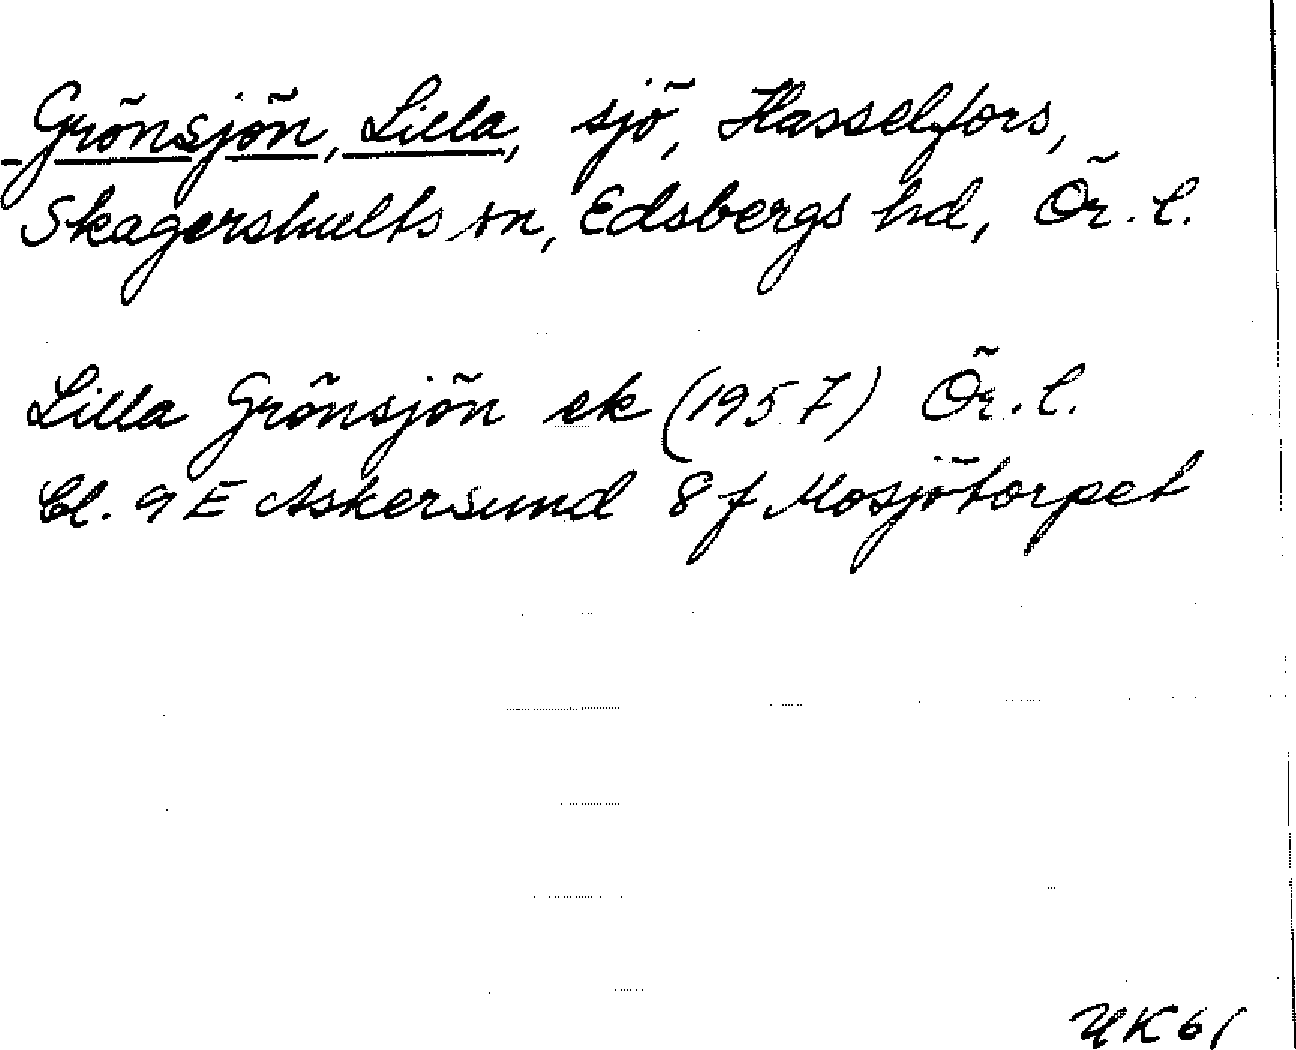 Grönsjön, Lilla, sjö, Hasselfors,
Skagershults sn, Edsbergs hd, Ör. l.
Lilla Grönsjön ek (1957) Ör. l.
bl. 9 E Askersund 8 f Mosjötorpet
UK 61